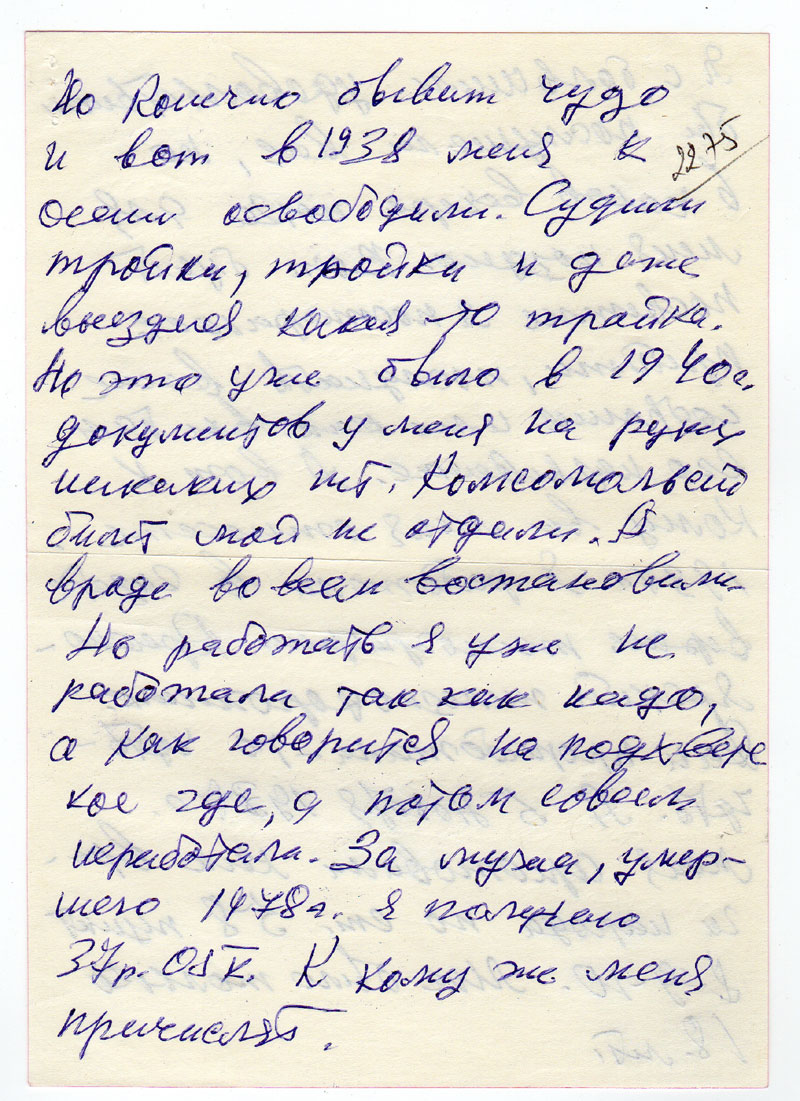 Но конечно бывают чудо
и вот в 1938 меня к
2275
осени освободили. Судили
тройки, тройки и даже
выездная какая-то тройка.
Но это уже было в 1940г.
документов у меня на руках
никаких нет. Комсомольский
билет мой не отдали. А
вроде во всем востановили.
Но работать я уже не
работала так как надо,
а как говорится на подхвате
кое где, а потом совсем
неработала. За мужа, умер-
шего 1978г. я получаю
37р. 05к. К кому же меня
причислять.